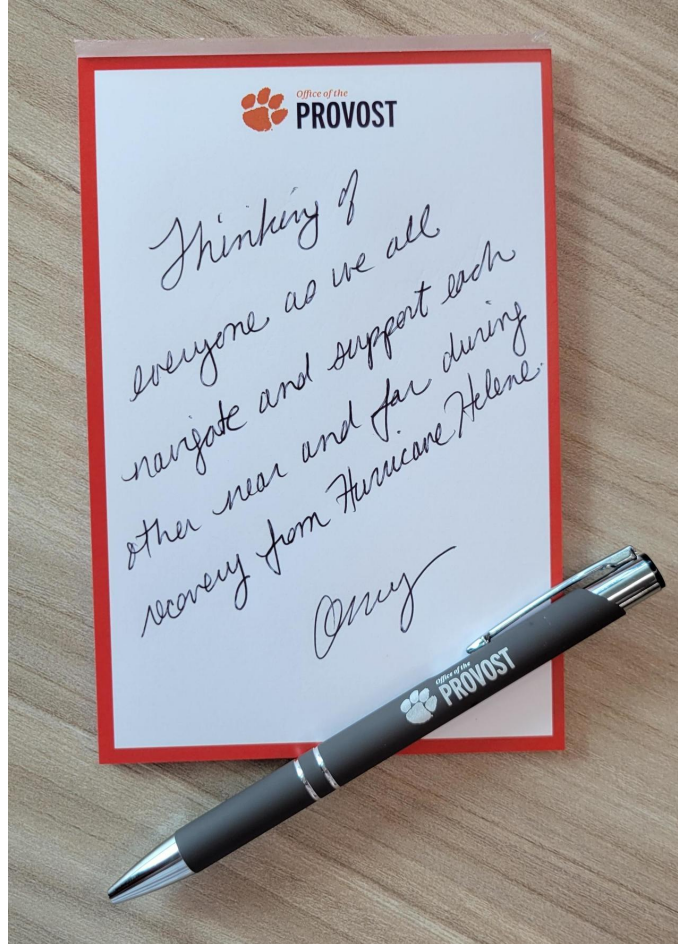 Office of the
PROVOST
Thinking of
everyone as we all
navigate and support each
other near and far during
recovery from Hurricane Helene.
Amy
Office of the
PROVOST